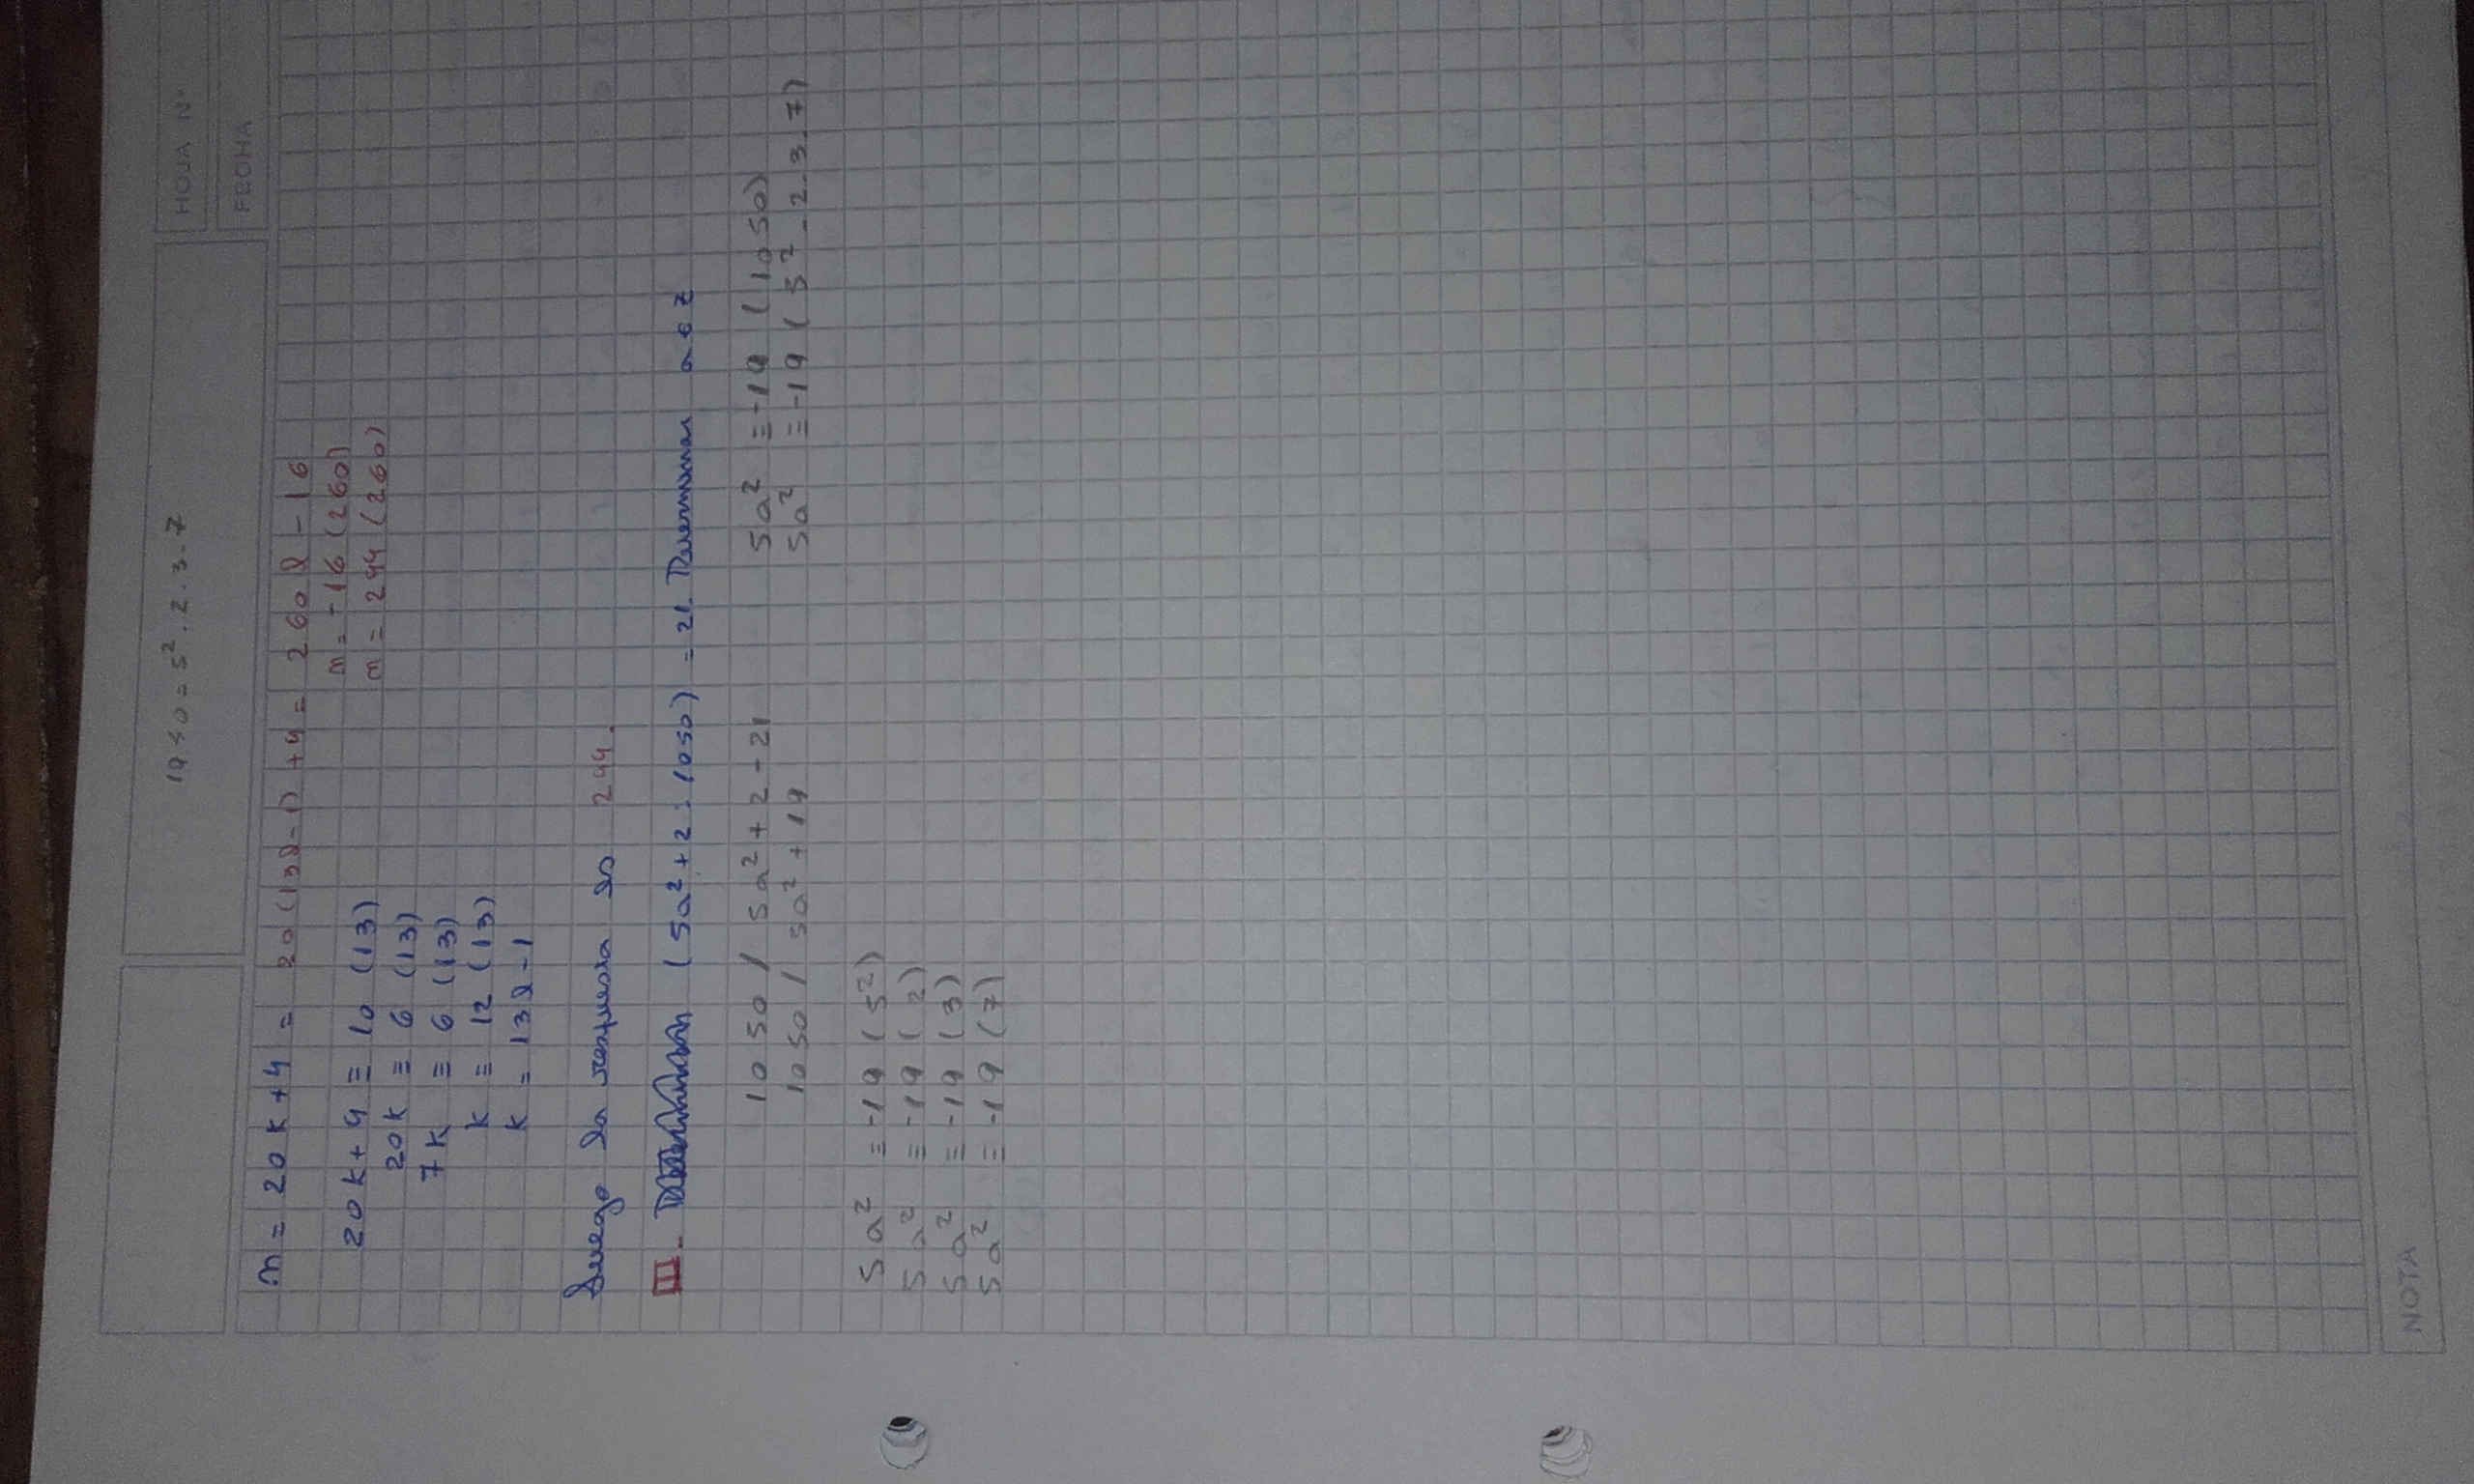 1050 = 5² . 2 . 3 . 7
HOJA Nº
FECHA
n = 20k+4 = 20(13l-1)+4 = 260l-16
n = -16 (260)
n = 244 (260)
20k+4 ≡ 10 (13)
20k ≡ 6 (13)
7k ≡ 6 (13)
k ≡ 12 (13)
k = 13l-1
Luego la respuesta es 244.
III. (5a²+2 : 1050) = 21. Determinar a ∈ Z
1050 / 5a²+2-21
5a² ≡ -19 (1050)
1050 / 5a²+19
5a² ≡ -19 (5².2.3.7)
5a² ≡ -19 (5²)
5a² ≡ -19 (2)
5a² ≡ -19 (3)
5a² ≡ -19 (7)
NOTA